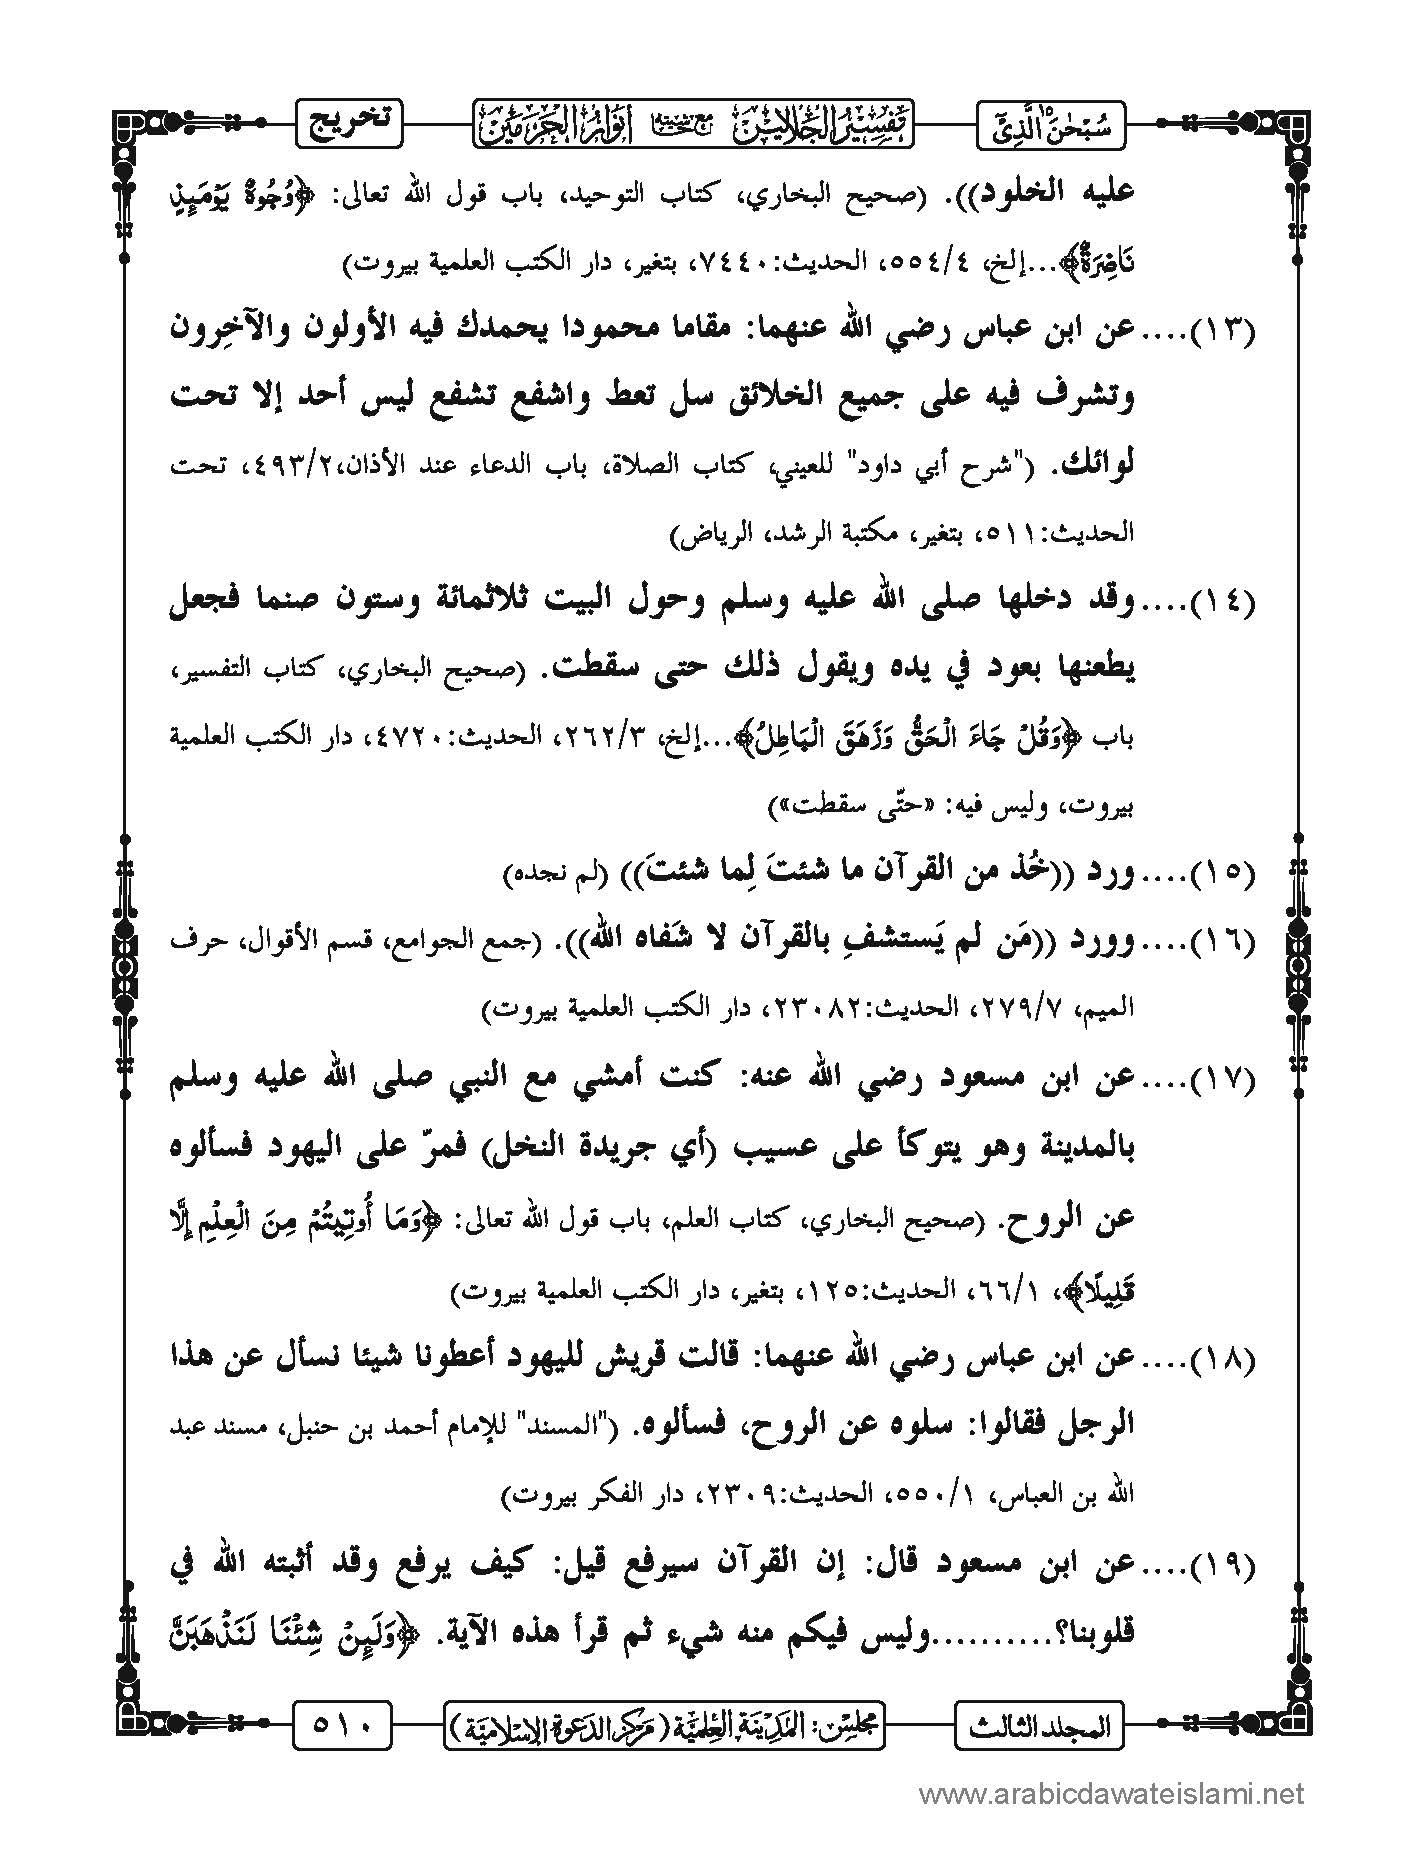 سُبْحٰنَ الَّذِىْٓ ١٥
تَفْسِيْرُ الْجَلَالَيْن مع حاشية أَنْوَارُ الْحَرَمَيْن
تخريج
عليه الخلود)). (صحيح البخاري، كتاب التوحيد، باب قول الله تعالى: ﴿وُجُوهٌ يَوْمَئِذٍ
نَاضِرَةٌ﴾...إلخ، ٥٥٤/٤، الحديث:٧٤٤٠، بتغير، دار الكتب العلمية بيروت)
(١٣)....عن ابن عباس رضي الله عنهما: مقاما محمودا يحمدك فيه الأولون والآخِرون
وتشرف فيه على جميع الخلائق سل تعط واشفع تشفع ليس أحد إلا تحت
لوائك. ("شرح أبي داود" للعيني، كتاب الصلاة، باب الدعاء عند الأذان،٤٩٣/٢، تحت
الحديث:٥١١، بتغير، مكتبة الرشد، الرياض)
(١٤)....وقد دخلها صلى الله عليه وسلم وحول البيت ثلاثمائة وستون صنما فجعل
يطعنها بعود في يده ويقول ذلك حتى سقطت. (صحيح البخاري، كتاب التفسير،
باب ﴿وَقُلْ جَاءَ الْحَقُّ وَزَهَقَ الْبَاطِلُ﴾...إلخ، ٢٦٢/٣، الحديث:٤٧٢٠، دار الكتب العلمية
بيروت، وليس فيه: «حتّى سقطت»)
(١٥)....ورد ((خُذ من القرآن ما شئتَ لِما شئتَ)) (لم نجده)
(١٦)....وورد ((مَن لم يَستشفِ بالقرآن لا شَفاه الله)). (جمع الجوامع، قسم الأقوال، حرف
الميم، ٢٧٩/٧، الحديث:٢٣٠٨٢، دار الكتب العلمية بيروت)
(١٧)....عن ابن مسعود رضي الله عنه: كنت أمشي مع النبي صلى الله عليه وسلم
بالمدينة وهو يتوكأ على عسيب (أي جريدة النخل) فمرّ على اليهود فسألوه
عن الروح. (صحيح البخاري، كتاب العلم، باب قول الله تعالى: ﴿وَمَا أُوتِيتُمْ مِنَ الْعِلْمِ إِلَّا
قَلِيلًا﴾، ٦٦/١، الحديث:١٢٥، بتغير، دار الكتب العلمية بيروت)
(١٨)....عن ابن عباس رضي الله عنهما: قالت قريش لليهود أعطونا شيئا نسأل عن هذا
الرجل فقالوا: سلوه عن الروح، فسألوه. ("المسند" للإمام أحمد بن حنبل، مسند عبد
الله بن العباس، ٥٥٠/١، الحديث:٢٣٠٩، دار الفكر بيروت)
(١٩)....عن ابن مسعود قال: إن القرآن سيرفع قيل: كيف يرفع وقد أثبته الله في
قلوبنا؟..........وليس فيكم منه شيء ثم قرأ هذه الآية. ﴿وَلَئِنْ شِئْنَا لَنَذْهَبَنَّ
المجلد الثالث
مجلس: المَدِيْنَة العِلْمِيَّة (مَركز الدعوة الإسلاميّة)
٥١٠
www.arabicdawateislami.net